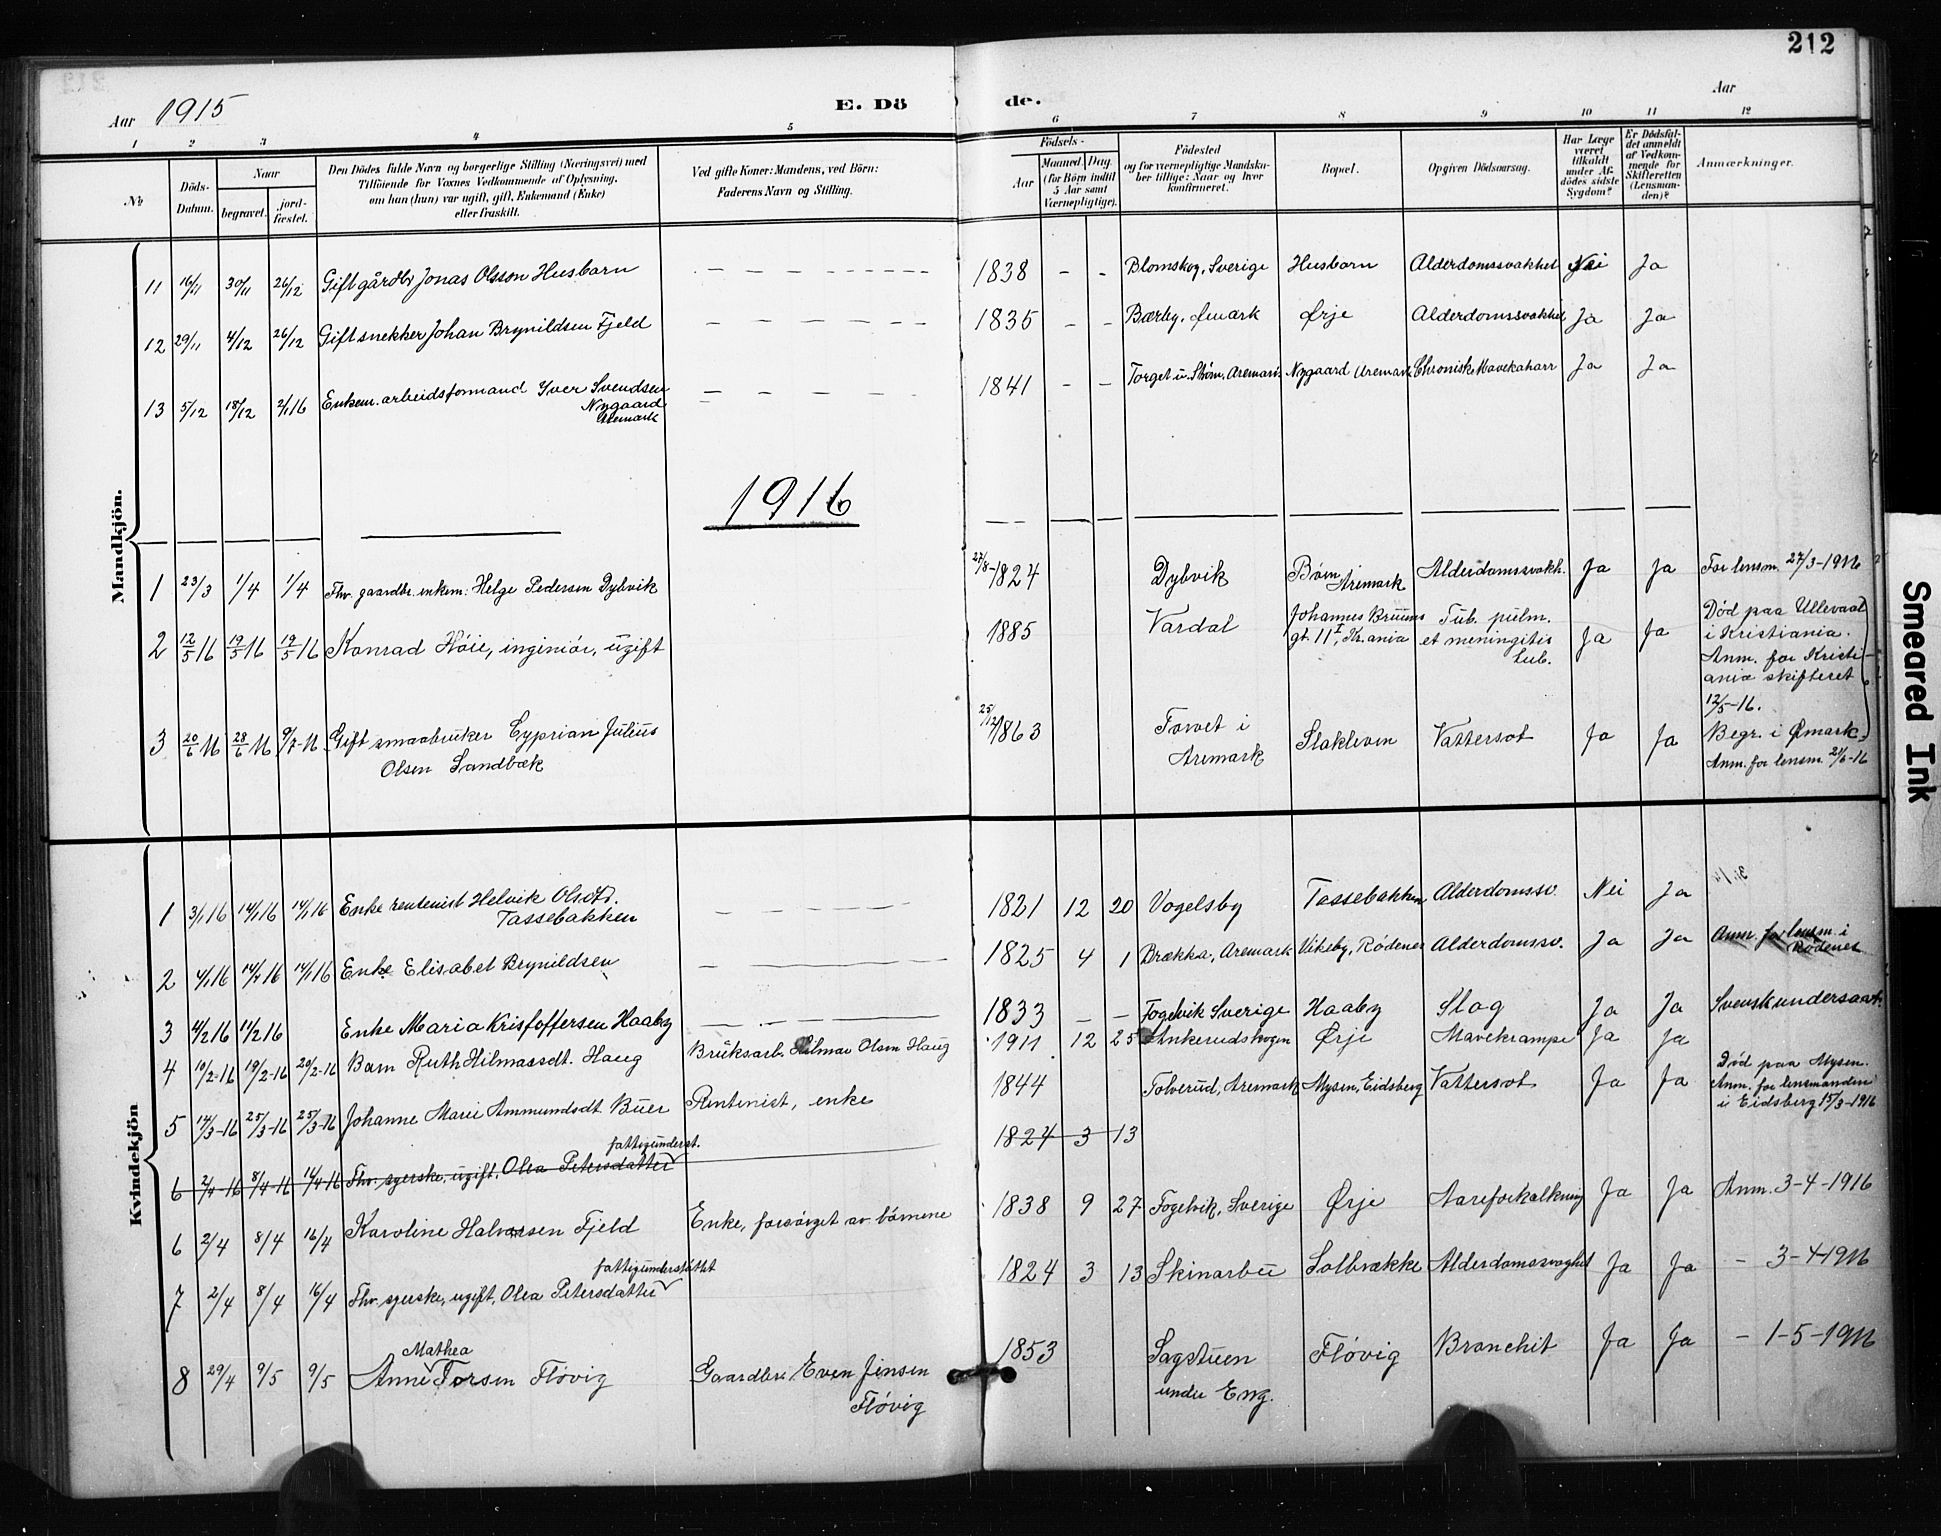 212
Aar 1915
E. Dö de.
Aar
1 2 3 4 5 6 7 8 9 10 11 12
No
Döds-Datum.
Naar
begravet.
jord-fæstet.
Den Dödes fulde Navn og borgerlige Stilling (Næringsvei) med
Tilföiende for Voxnes Vedkommende af Oplysning,
om han (hun) var ugift, gift, Enkemand (Enke)
eller fraskilt.
Ved gifte Koner: Mandens, ved Börn:
Faderens Navn og Stilling.
Födsels-
Aar
Maaned. Dag.
(for Börn indtil
5 Aar samt
Værnepligtige).
Födested
og for værnepligtige Mandska-
ber tillige: Naar og hvor
konfirmeret.
Bopæl.
Opgiven Dödsaarsag.
Har Læge
været
tilkaldt
under Af-
dödes sidste
Sygdom?
Er Dödsfal-
det anmeldt
af Vedkom-
mende for
Skifteretten
(Lensman-
den)?
Anmærkninger.
Mandkjön.
11 16/11 30/11 26/12 Gift gårdbr Jonas Olsson Husbarn - - - - - - - 1838 - - Blomskog, Sverige Husborn Alderdomssvakhet Nei Ja
12 29/11 4/12 26/12 Gift snekker Johan Brynildsen Fjeld - - - - - - 1835 - - Bærby, Ømark Ørje Alderdomssvakhet Ja Ja
13 5/12 18/12 2/1 16 Enkem. arbeidsformand Iver Svendsen - - - - - 1841 - - Torget u. Strøm, Aremark Nygaard Aremark Chronisk Mavekatarr Ja Ja
Nygaard
Aremark
1916
1 23/3 1/4 1/4 Fhv. gaardbr. enkem: Helge Pedersen Dybvik 27/8-1824 Dybvik Bøen Aremark Alderdomssvakh. Ja Ja For lensm. 27/3-1916
2 12/5 16 19/5 16 19/5 16 Konrad Höie, ingeniör, ugift 1885 Vardal Johannes Bruuns Tub. pulm. Ja Ja Död paa Ullevaal
gt. 11 I, Kr.ania et meningitis i Kristiania.
tub. Anm. for Kristi-
ania skifteret
12/5-16.
3 20/6 16 28/6 16 9/7-16 Gift smaabruker Cyprian Julius 25/12 1863 Forvet i Slakliven Vattersot Ja Ja Begr. i Ømark,
Olsen Sandbæk Aremark Anm. for lensm. 21/6-16
Kvindekjön
1 3/1 16 14/1 16 14/1 16 Enke rentenist Helvik Olsdt. - - - - - 1821 12 20 Vogelsby Tassebakken Alderdomssv. Nei Ja
Tassebakken
2 4/1 16 14/1 16 14/1 16 Enke Elisabet Brynildsen - - - - - 1825 4 1 Brække, Aremark Viksby, Rödenes Alderdomssv. Ja Ja Anm. for lensm. i
Rödenes
3 4/2 16 14/2 16 Enke Maria Kristoffersen Haaby - - - - - 1833 - - Fogelvik Sverige Haaby Slag Ja Ja Svensk undersaat.
4 10/2-16 19/2-16 20/2-16 Barn Ruth Hilmassdt. Haug Bruksarb. Hilmar Olsen Haug 1911 12 25 Ankerudskogen Ørje Mavekrampe Ja Ja
5 14/3-16 25/3-16 25/3-16 Johanne Marie Ammundsdt Buer Rentenist, enke 1844 Tolverud, Aremark Mysen, Eidsberg Vattersot Ja Ja Död paa Mysen.
Anm. for lensmanden
i Eidsberg 15/3-1916
fattigunderst.
6 2/4-16 8/4-16 16/4-16 Fhv. syerske, ugift, Olea Petersdatter 1824 3 13
6 2/4 8/4 16/4 Karoline Halvorsen Fjeld Enke, forsörget av börnene 1838 9 27 Fogelvik, Sverige Ørje Aareforkalkning Ja Ja Anm. 3-4-1916
fattigunderstöttet
7 2/4 8/4 16/4 Fhv. syerske, ugift, Olea Petersdatter 1824 3 13 Skinarbu Solbrække Alderdomssvaghet Ja Ja - 3-4-1916
Mathea
8 29/4 9/5 9/5 Anne Torsen Flövig Gaardbr. Even Jensen 1853 Sagstuen Flövig Bronchit Ja Ja - 1-5-1916
Flövig under Eng.
Smeared Ink